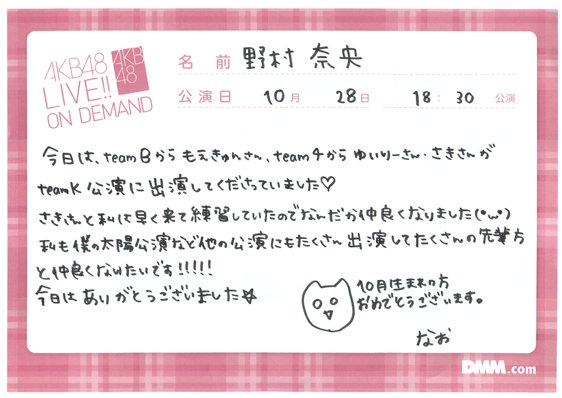 AKB48
LIVE!!
ON DEMAND
AKB
48
名 前 野村 奈央
公演日 10月 28日 18:30 公演
今日は、teamBから もえきゅんさん、team4から ゆいりーさん・さきさんが
teamK 公演に 出演してくださっていました♡
さきさんと私は早く来て練習していたのでなんだか仲良くなりました(•ω•)
私も僕の太陽公演など他の公演にもたくさん出演してたくさんの先輩方
と仲良くなりたいです!!!!!
今日は ありがとうございました☆
10月生まれの方
おめでとうございます。
なお
DMM.com